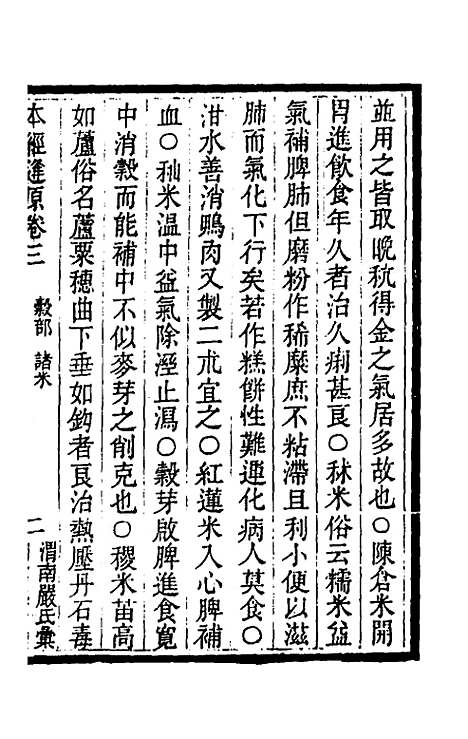 並用之皆取晚秔得金之氣居多故也○陳倉米開
胃進飲食年久者治久痢甚良○秫米俗云糯米益
氣補脾肺但磨粉作稀糜庶不粘滯且利小便以滋
肺而氣化下行矣若作糕餅性難運化病人莫食○
泔水善消鴨肉又製二朮宜之○紅蓮米入心脾補
血○秈米溫中益氣除溼止瀉○穀芽啟脾進食寬
中消穀而能補中不似麥芽之削克也○稷米苗高
如蘆俗名蘆粟穗曲下垂如鈎者良治熱壓丹石毒
本經逢原卷三 穀部 諸米 二 渭南嚴氏彙